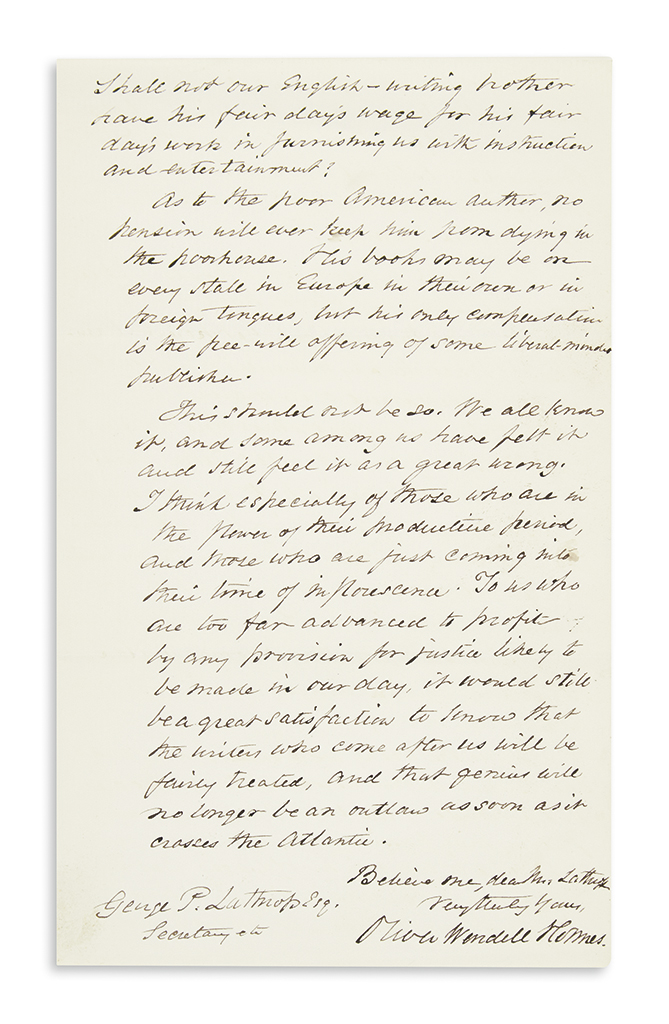 Shall not our English-writing brother
have his fair day's wage for his fair
day's work in furnishing us with instruction
and entertainment?
As to the poor American author, no
pension will ever keep him from dying in
the poorhouse. His books may be on
every stall in Europe in their own or in
foreign tongues, but his only compensation
is the free-will offering of some liberal-minded
publisher.
This should not be so. We all know
it, and some among us have felt it
and still feel it as a great wrong.
I think especially of those who are in
the flower of their productive period,
and those who are just coming into
their time of inflorescence. To us who
are too far advanced to profit
by any provision for justice likely to
be made in our day, it would still
be a great satisfaction to know that
the writers who come after us will be
fairly treated, and that genius will
no longer be an outlaw as soon as it
crosses the Atlantic.
Believe me, dear Mr. Lathrop
Very truly Yours,
Oliver Wendell Holmes.
George P. Lathrop Esq.
Secretary etc